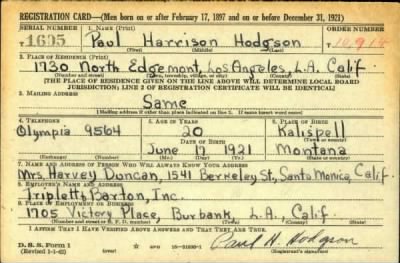 REGISTRATION CARD—(Men born on or after February 17, 1897 and on or before December 31, 1921)
SERIAL NUMBER 1. NAME (Print) ORDER NUMBER
T 1605 Paul Harrison Hodgson
(First) (Middle) (Last)
2. PLACE OF RESIDENCE (Print)
1730 North Edgemont, Los Angeles, L.A. Calif.
(Number and street) (Town, township, village, or city) (County) (State)
[THE PLACE OF RESIDENCE GIVEN ON THE LINE ABOVE WILL DETERMINE LOCAL BOARD
JURISDICTION; LINE 2 OF REGISTRATION CERTIFICATE WILL BE IDENTICAL]
3. MAILING ADDRESS
Same
[Mailing address if other than place indicated on line 2. If same insert word same]
4. TELEPHONE 5. AGE IN YEARS 6. PLACE OF BIRTH
Olympia 9564 20 Kalispell
DATE OF BIRTH (Town or county)
June 17 1921 Montana
(Exchange) (Number) (Mo.) (Day) (Yr.) (State or country)
7. NAME AND ADDRESS OF PERSON WHO WILL ALWAYS KNOW YOUR ADDRESS
Mrs. Harvey Duncan, 1541 Berkeley St., Santa Monica, Calif.
8. EMPLOYER'S NAME AND ADDRESS
Triplett & Barton, Inc.
9. PLACE OF EMPLOYMENT OR BUSINESS
1705 Victory Place, Burbank, L.A., Calif.
(Number and street or R. F. D. number) (Town) (County) (State)
I AFFIRM THAT I HAVE VERIFIED ABOVE ANSWERS AND THAT THEY ARE TRUE.
D. S. S. Form 1 GPO Paul H. Hodgson
(Revised 1-1-42) (Registrant's signature)